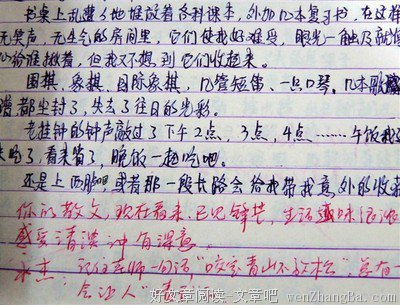 书桌上乱蓬々地堆放着各科课本，外加几本复习书，在这样
无笑声，无生气的房间里，它们使我好难受，眼光一触及就
揪着，但我又不想到它们收起来。
围棋、象棋、国际象棋，几管短笛、一点口琴。几本歌
都尘封了，失去了往日的光彩。
老挂钟的钟声敲过了下午2点，3点，4点……午饭我
了，看来省了，晚饭一起吃吧。
还是上西脚吧或者那一段长路会给我带我意外的收获
你的散文，现在看来，已见锋芒，生活趣味浓浓
感受清淡冲有深意。
永杰：记住老师一句话"咬定青山不放松"，总有一
会让人
好文章阅读-文章吧 wenZhangBa.com